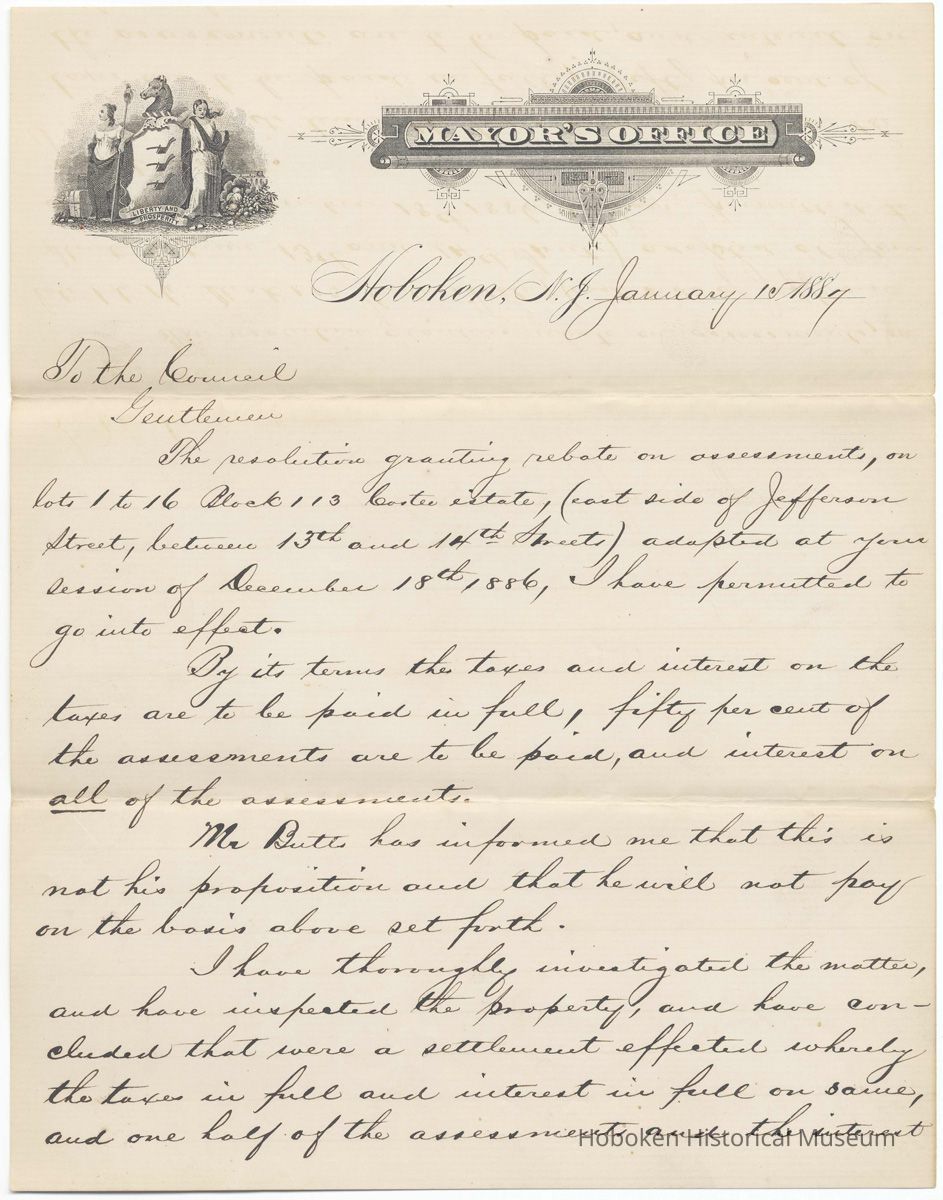 LIBERTY AND
PROSPERITY
MAYOR'S OFFICE
Hoboken, N.J. January 15 1887
To the Council
Gentlemen
The resolution granting rebate on assessments, on
lots 1 to 16 Block 113 Coster estate, (east side of Jefferson
Street, between 13th and 14th Streets) adopted at your
session of December 18th 1886, I have permitted to
go into effect.
By its terms the taxes and interest on the
taxes are to be paid in full, fifty per cent of
the assessments are to be paid, and interest on
all of the assessments.
Mr Butts has informed me that this is
not his proposition and that he will not pay
on the basis above set forth.
I have thoroughly investigated the matter,
and have inspected the property, and have con-
cluded that were a settlement effected whereby
the taxes in full and interest in full on same,
and one half of the assessment and the interest
Hoboken Historical Museum